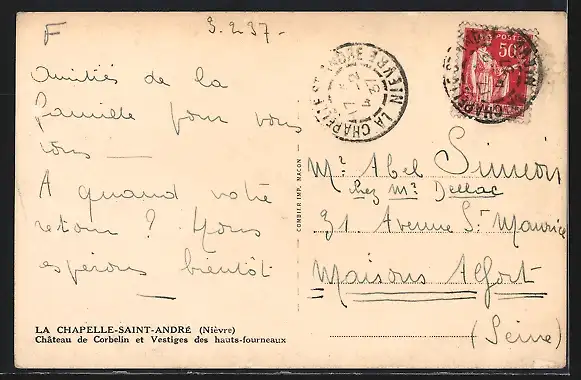 F
3.2.37-
Amitiés de la
famille pour vous
tous —
A quand votre
retour ? Nous
espérons bientôt
LA CHAPELLE-SAINT-ANDRÉ (Nièvre)
Château de Corbelin et Vestiges des hauts-fourneaux
COMBIER IMP. MACON
LA CHAPELLE ST
NIEVRE
POSTES
50c
Mr. Abel Simeon
chez Mr. Dellac
31. Avenue St Maurice
Maisons Alfort
(Seine)